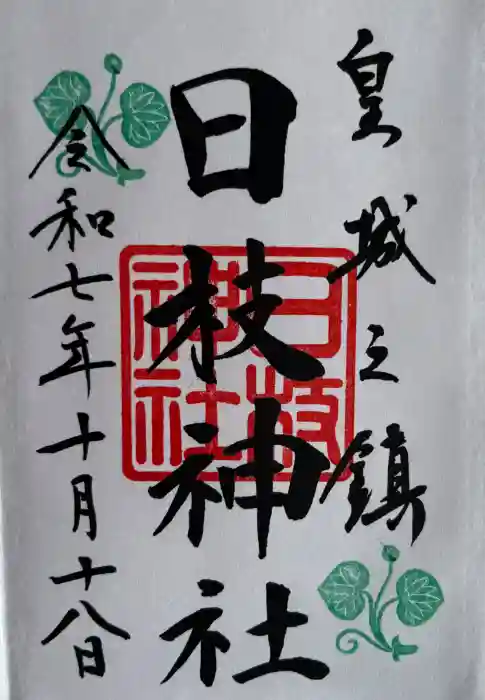 皇城之鎮
日枝神社
日枝神社
令和七年十月十八日